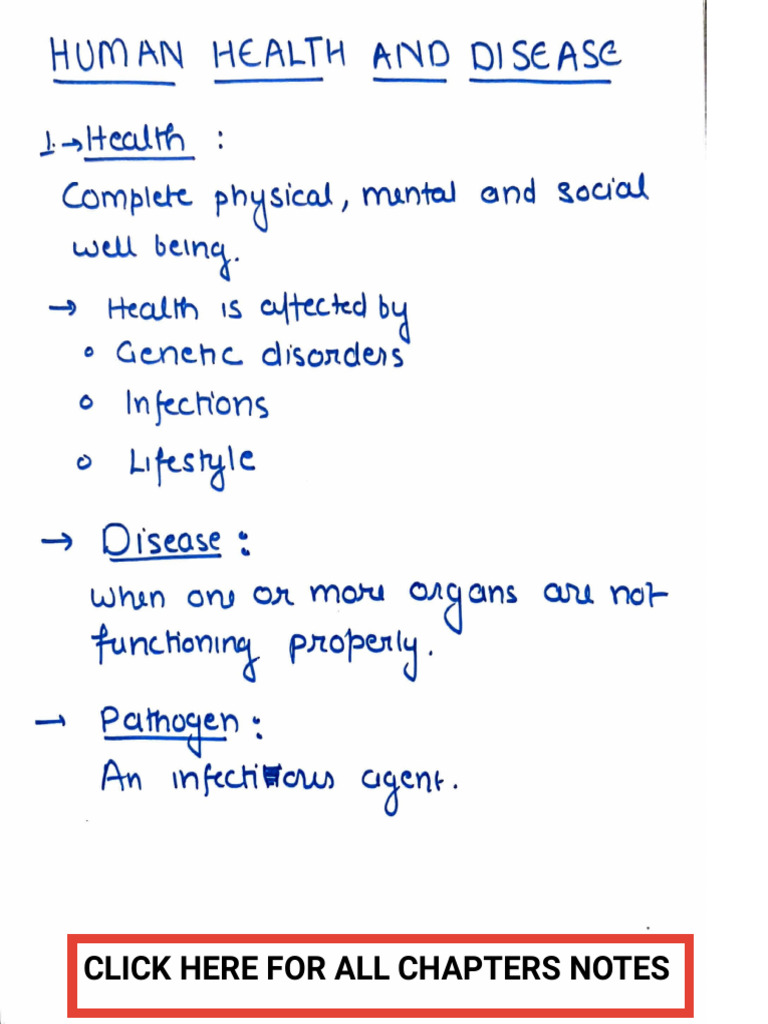 HUMAN HEALTH AND DISEASE
1.→Health :
Complete physical, mental and social
well being.
→ Health is affected by
∘ Genetic disorders
∘ Infections
∘ Lifestyle
→ Disease :
When one or more organs are not
functioning properly.
→ Pathogen :
An infectious agent.
CLICK HERE FOR ALL CHAPTERS NOTES